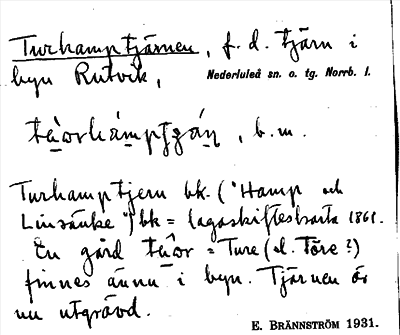 Turhamptjärnen, f. d. tjärn i
byn Rutvik, Nederluleå sn. o. tg. Norrb. l.
, b. m.
Turhamptjern bk. ("Hamp och
Linsänke") bk = lagaskifteskarta 1861.
En gård = Ture (el. Töre?)
finnes ännu i byn. Tjärnen är
nu utgrävd.
E. BRÄNNSTRÖM 1931.